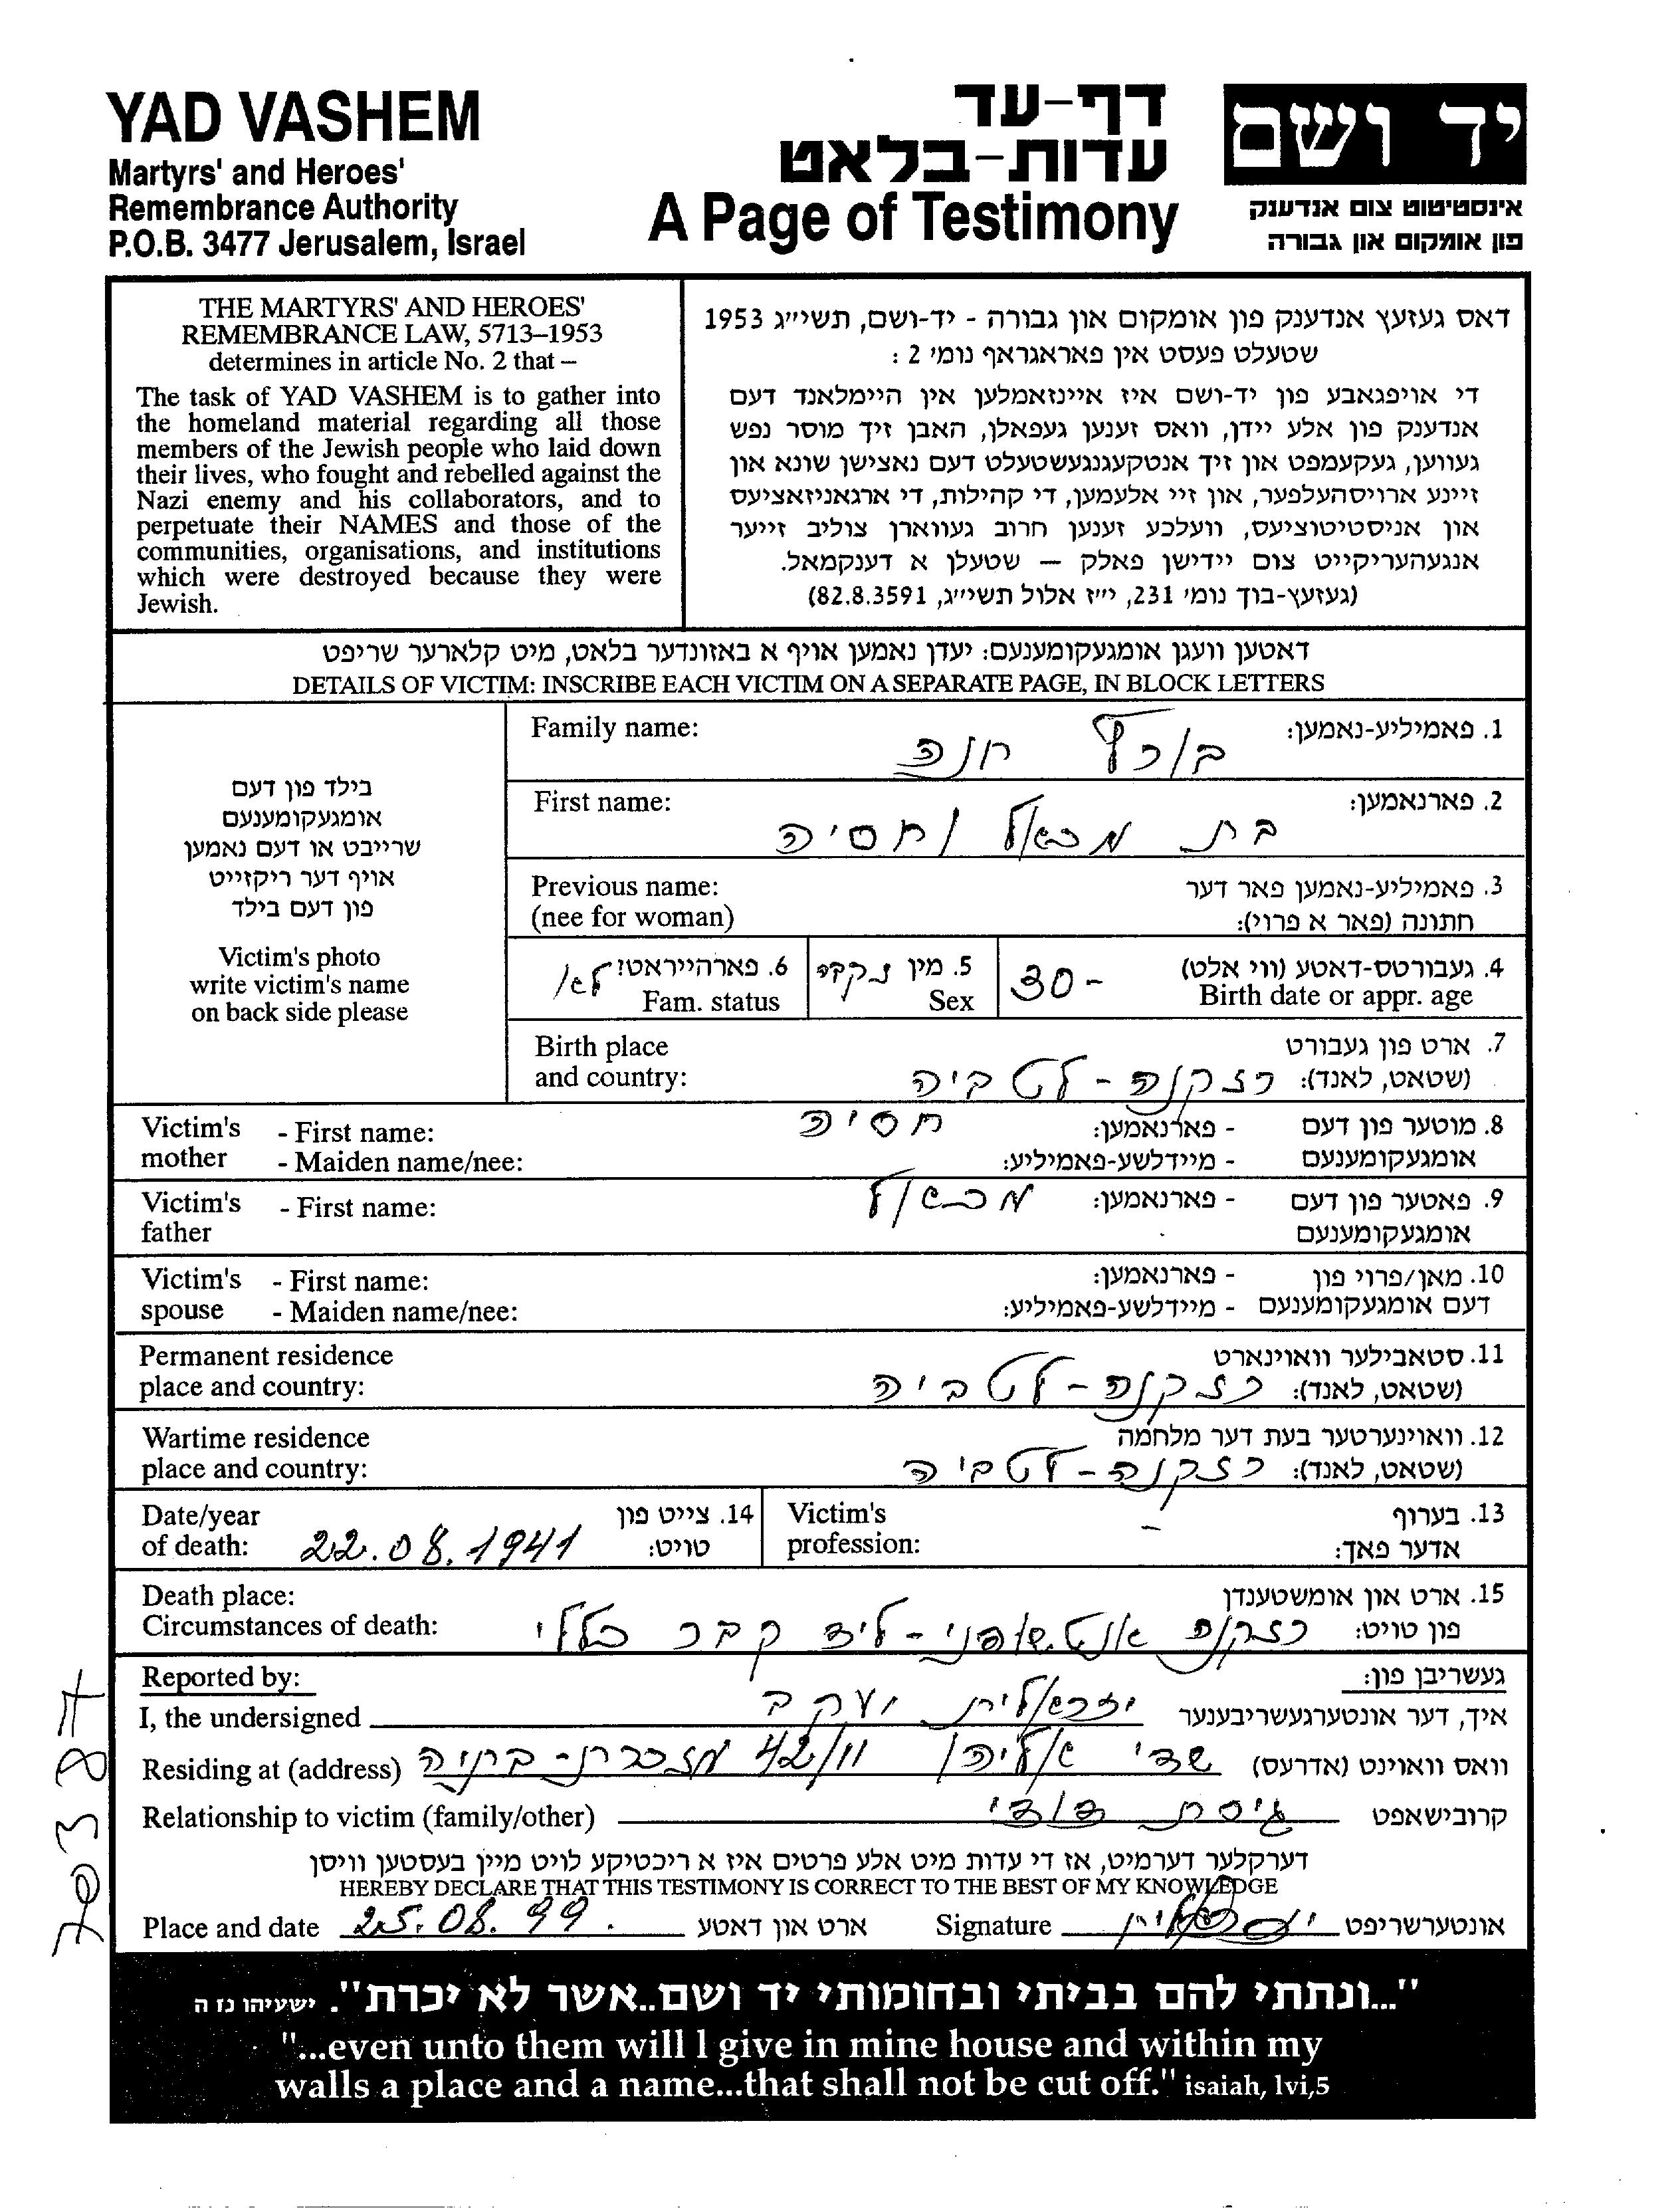 YAD VASHEM
Martyrs' and Heroes'
Remembrance Authority
P.O.B. 3477 Jerusalem, Israel
דף-עד
עדות-בלאט
A Page of Testimony
יד ושם
אינסטיטוט צום אנדענק
פון אומקום און גבורה
THE MARTYRS' AND HEROES'
REMEMBRANCE LAW, 5713–1953
determines in article No. 2 that –
The task of YAD VASHEM is to gather into
the homeland material regarding all those
members of the Jewish people who laid down
their lives, who fought and rebelled against the
Nazi enemy and his collaborators, and to
perpetuate their NAMES and those of the
communities, organisations, and institutions
which were destroyed because they were
Jewish.
דאס געזעץ אנדענק פון אומקום און גבורה - יד-ושם, תשי״ג 1953
שטעלט פעסט אין פאראגראף נומי 2 :
די אויפגאבע פון יד-ושם איז איינזאמלען אין היימלאנד דעם
אנדענק פון אלע יידן, וואס זענען געפאלן, האבן זיך מוסר נפש
געווען, געקעמפט און זיך אנטקעגנגעשטעלט דעם נאצישן שונא און
זיינע ארויסהעלפער, און זיי אלעמען, די קהילות, די ארגאניזאציעס
און אניסטיטוציעס, וועלכע זענען חרוב געווארן צוליב זייער
אנגעהעריקייט צום יידישן פאלק — שטעלן א דענקמאל.
(געזעץ-בוך נומי 231, י״ז אלול תשי״ג, 82.8.3591)
דאטען וועגן אומגעקומענעם: יעדן נאמען אויף א באזונדער בלאט, מיט קלארער שריפט
DETAILS OF VICTIM: INSCRIBE EACH VICTIM ON A SEPARATE PAGE, IN BLOCK LETTERS
בילד פון דעם
אומגעקומענעם
שרייבט או דעם נאמען
אויף דער ריקזייט
פון דעם בילד
Victim's photo
write victim's name
on back side please
Family name: חנה 1. פאמיליע-נאמען:
First name: בת מכאל וחסיה 2. פארנאמען:
Previous name: 3. פאמיליע-נאמען פאר דער
(nee for woman) חתונה (פאר א פרוי):
4. געבורטס-דאטע (ווי אלט) 30 -
Birth date or appr. age
5. מין נקבה
Sex
6. פארהייראט? לא
Fam. status
Birth place 7. ארט פון געבורט
and country: רזקנה - לטביה (שטאט, לאנד):
Victim's - First name: חסיה - פארנאמען: 8. מוטער פון דעם
mother - Maiden name/nee: - מיידלשע-פאמיליע: אומגעקומענעם
Victim's - First name: מכאל - פארנאמען: 9. פאטער פון דעם
father אומגעקומענעם
Victim's - First name: - פארנאמען: 10. מאן/פרוי פון
spouse - Maiden name/nee: - מיידלשע-פאמיליע: דעם אומגעקומענעם
Permanent residence 11. סטאבילער וואוינארט
place and country: רזקנה - לטביה (שטאט, לאנד):
Wartime residence 12. וואוינערטער בעת דער מלחמה
place and country: רזקנה - לטביה (שטאט, לאנד):
Date/year 14. צייט פון
of death: 22.08.1941 טויט:
Victim's 13. בערוף
profession: - אדער פאך:
Death place: 15. ארט און אומשטענדן
Circumstances of death: רזקנה - ליד קבר כללי פון טויט:
Reported by: געשריבן פון:
I, the undersigned יזראלית יעקב איך, דער אונטערגעשריבענער
Residing at (address) שד' אליהו 42/11 מזכרת-בתיה וואס וואוינט (אדרעס)
Relationship to victim (family/other) גיסת דודי קרובישאפט
דערקלער דערמיט, אז די עדות מיט אלע פרטים איז א ריכטיקע לויט מיין בעסטען וויסן
HEREBY DECLARE THAT THIS TESTIMONY IS CORRECT TO THE BEST OF MY KNOWLEDGE
Place and date 25.08.99. ארט און דאטע Signature אונטערשריפט
"...ונתתי להם בביתי ובחומותי יד ושם..אשר לא יכרת". ישעיהו נז ה
"...even unto them will I give in mine house and within my
walls a place and a name...that shall not be cut off." isaiah, lvi,5